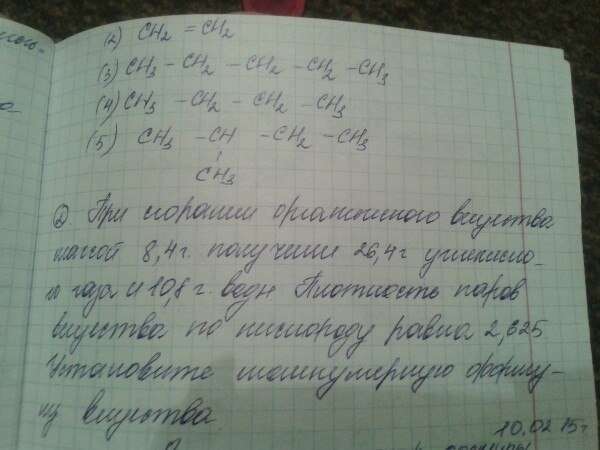 (2) CH₂ = CH₂
(3) CH₃ - CH₂ - CH₂ - CH₂ - CH₃
(4) CH₃ - CH₂ - CH₂ - CH₃
(5) CH₃ - CH - CH₂ - CH₃
CH₃
2. При сгорании органического вещества
массой 8,4 г. получили 26,4 г углекисло-
го газа и 10,8 г. воды Плотность паров
вещества по кислороду равна 2,625
Установите молекулярную форму-
лу вещества.
10.02.15г